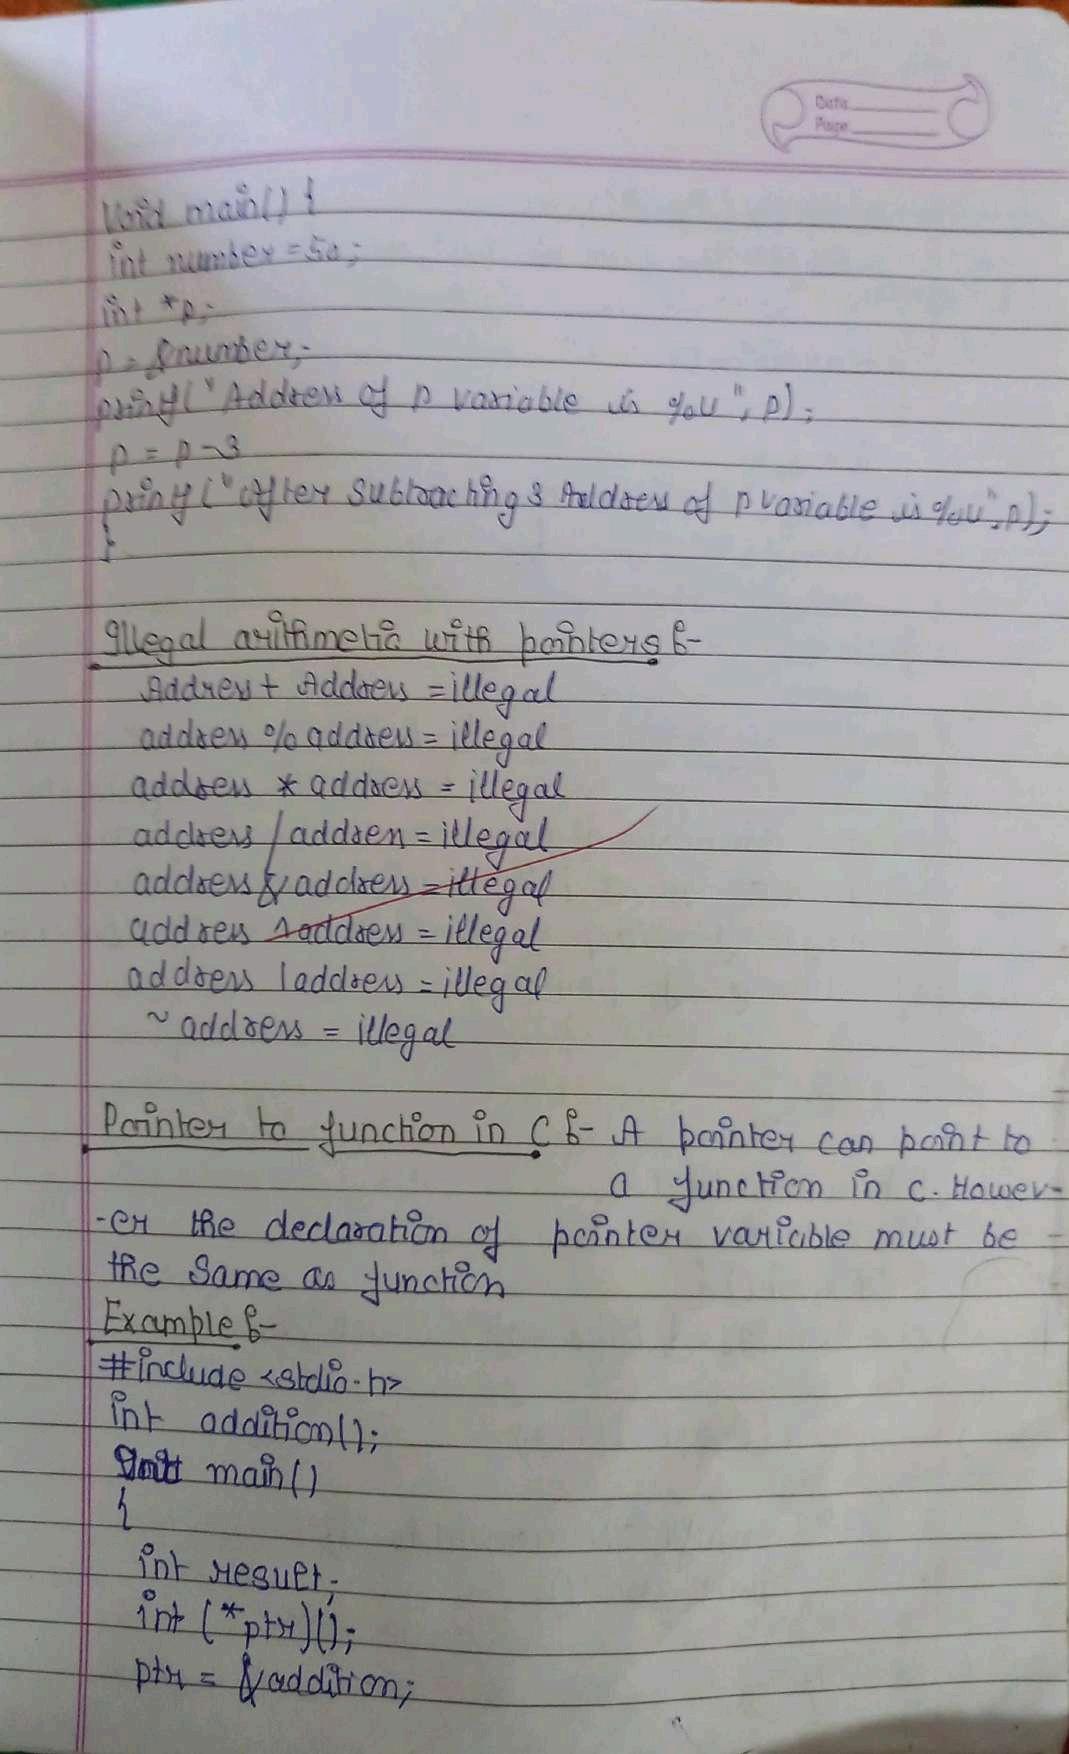 Date
Page
void main() {
int number = 50;
int *p;
p = &number;
printf("Address of p variable is %u", p);
p = p-3
printf("after Subtracting 3 Address of p variable is %u", p);
}
Illegal arithmetic with pointers :-
Address + Address = illegal
address % address = illegal
address * address = illegal
address / address = illegal
address & address = illegal
address ^ address = illegal
address | address = illegal
~ address = illegal
Pointer to function in C :- A pointer can point to
a function in c. Howev-
-er the declaration of pointer variable must be
the same as function
Example :-
#include <stdio.h>
int addition();
int main()
{
int result;
int (*ptr)();
ptr = &addition;